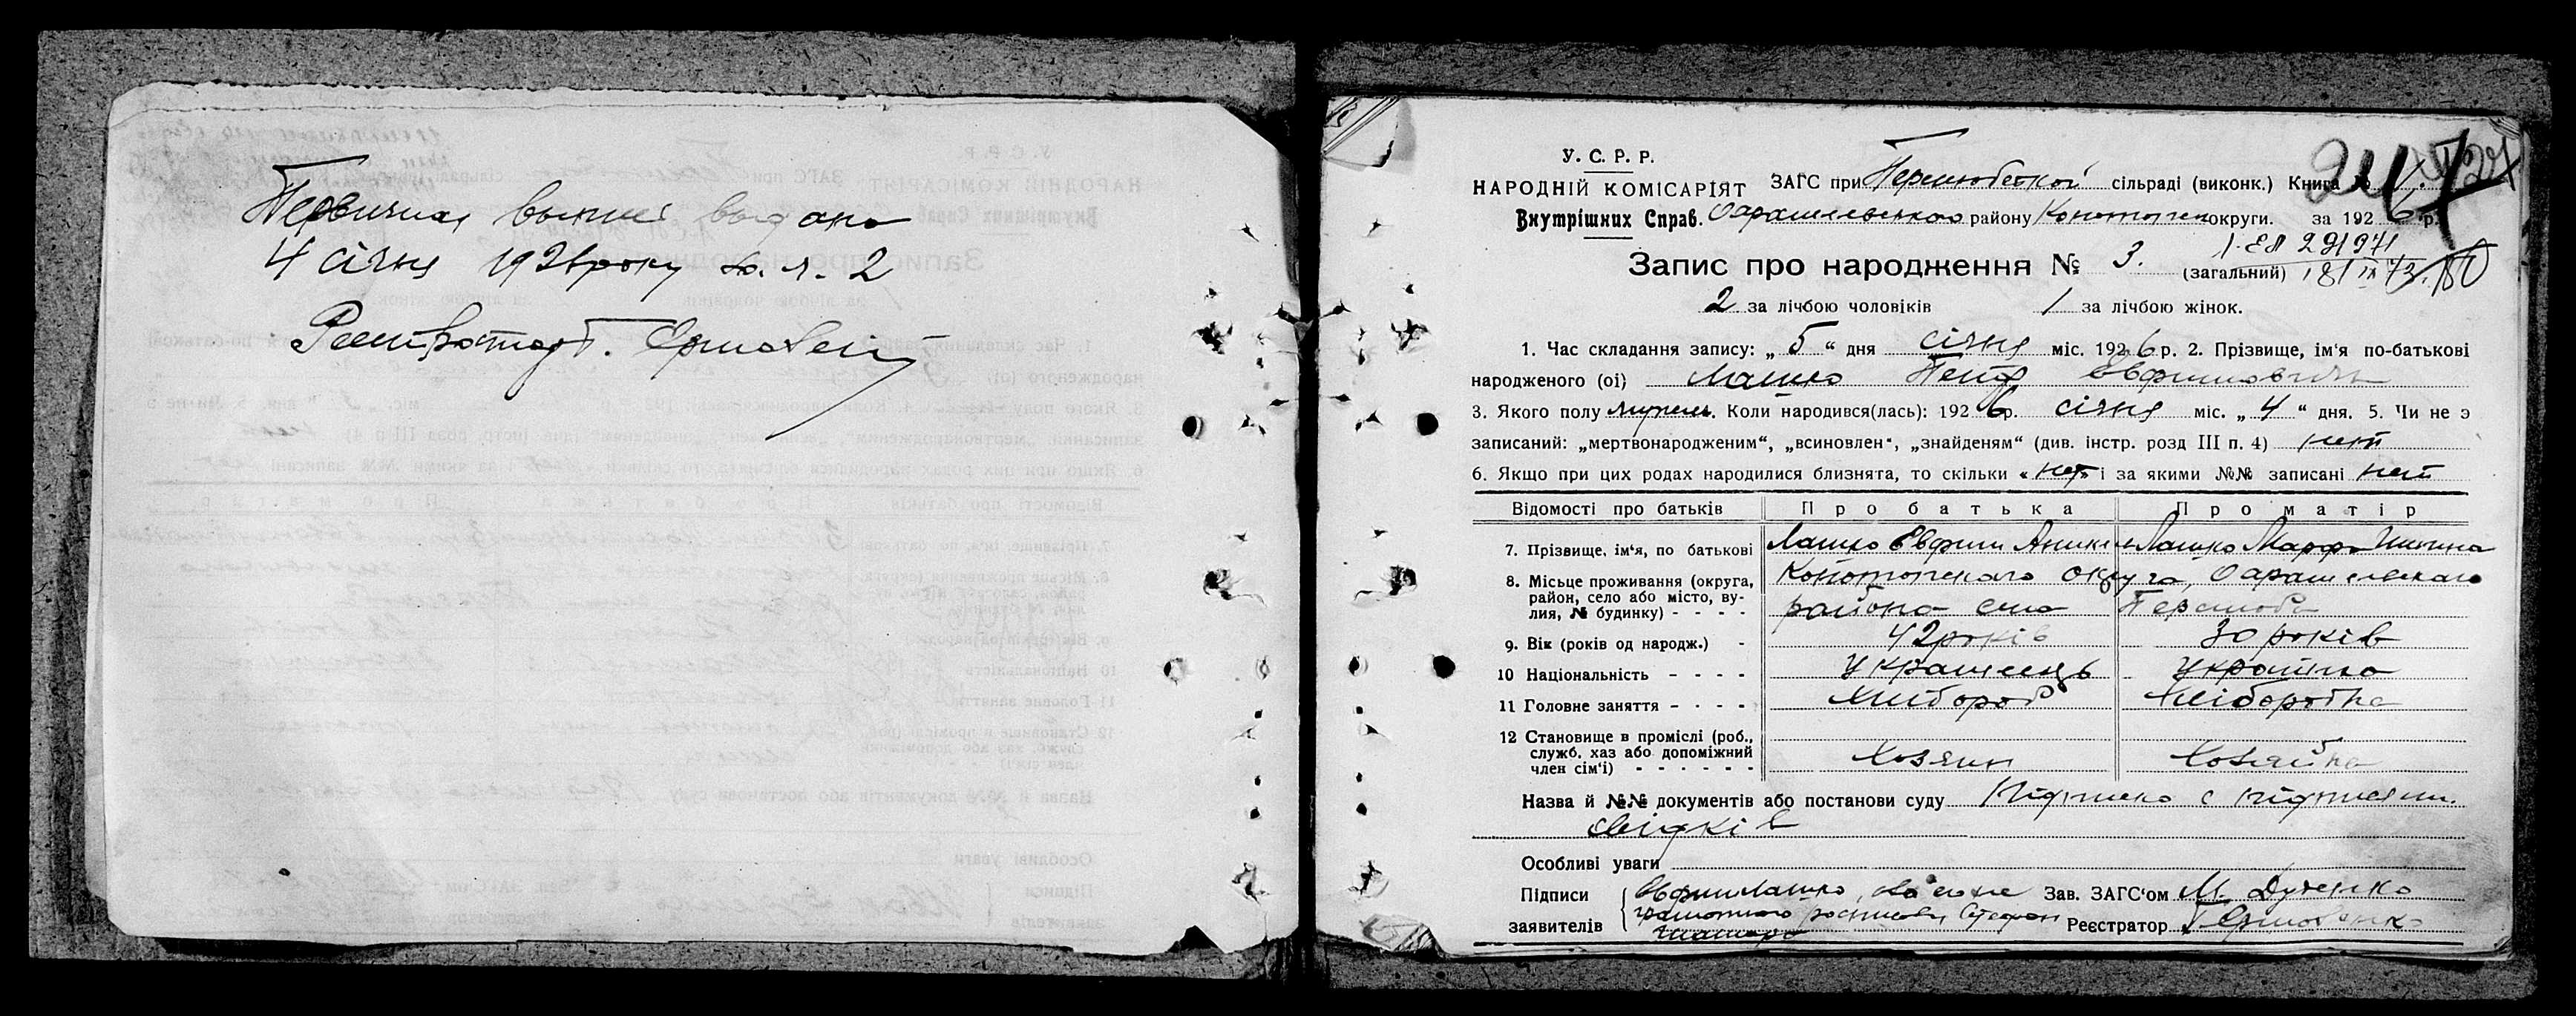 Первична выпис выдана
4 січня 1926 року за ч. 2
Реєстратор Т. Ермовенко
У. С. Р. Р.
НАРОДНІЙ КОМІСАРІЯТ
Внутрішних Справ.
ЗАГС при Першлюбской сільраді (виконк.) Книга № 1.
району Конотопск округи. за 1926 р.
247
1-ЕЛ 291971
Запис про народження № 3. (загальний) 181 IX 73.
2 за лічбою чоловіків 1 за лічбою жінок.
1. Час складання запису: „5“ дня січня міс. 1926 р. 2. Прізвище, ім‘я по-батькові
народженого (ої) Лашко Петр Евфимович
3. Якого полу мужеск. Коли народився(лась): 1926 р. січня міс. „4“ дня. 5. Чи не э
записаний: „мертвонародженим“, „всиновлен“, „знайденям“ (див. інстр. розд III п. 4) нет
6. Якщо при цих родах народилися близнята, то скільки «нет» і за якими №№ записані нет
Відомості про батьків Про батька Про матір
7. Прізвище, ім‘я, по батькові Лашко Евфим Лашко Марфа
8. Місьце проживання (округа, район, село або місто, вулия, № будинку) - - - - Конотопскаго округа,
района села Першлюба
9. Вік (років од народж.) - 42 років 30 років
10 Національність - - - - Украинець Украінка
11 Головне заняття - - - - Хлібороб Хліборобка
12 Становище в промислі (роб., служб. хаз або допоміжний член сім‘і) - - - - - - Хозяин Хозяйка
Назва й №№ документів або постанови суду Підписка с підписями
свідків
Особливі уваги
Підписи заявителів Евфим Лашко,
Степан
Зав. ЗАГС‘ом М. Дученко
Реєстратор Т. Ермовенко